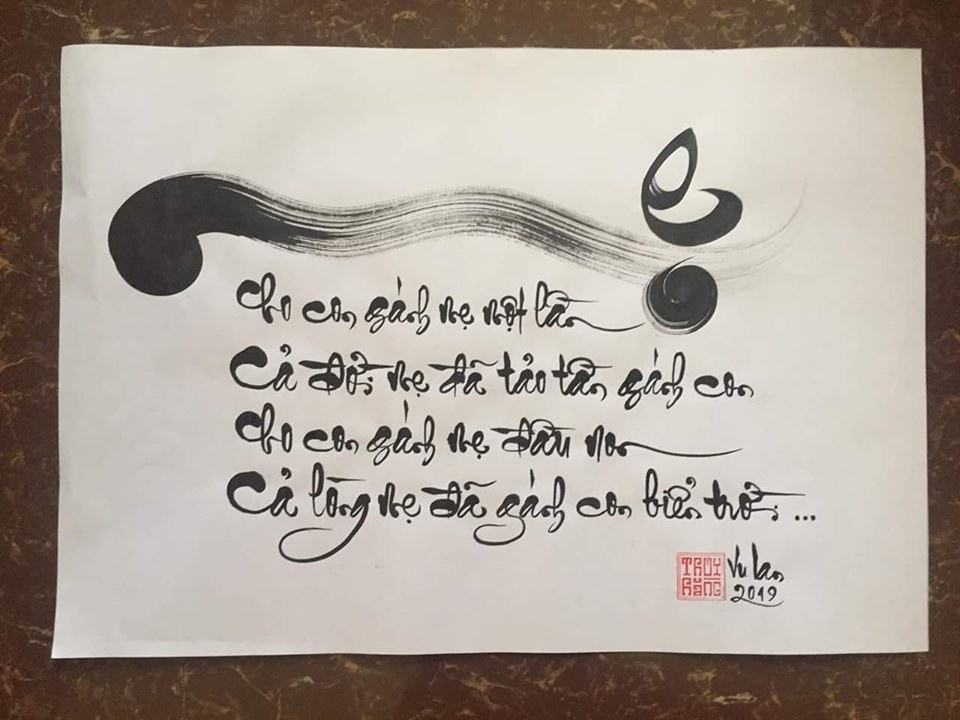 Cho con gánh mẹ một lần
Cả đời mẹ đã tảo tần gánh con
Cho con gánh mẹ đầu non
Cả lòng mẹ đã gánh con biển trời...
THUÝ
HẰNG
Vu lan
2019